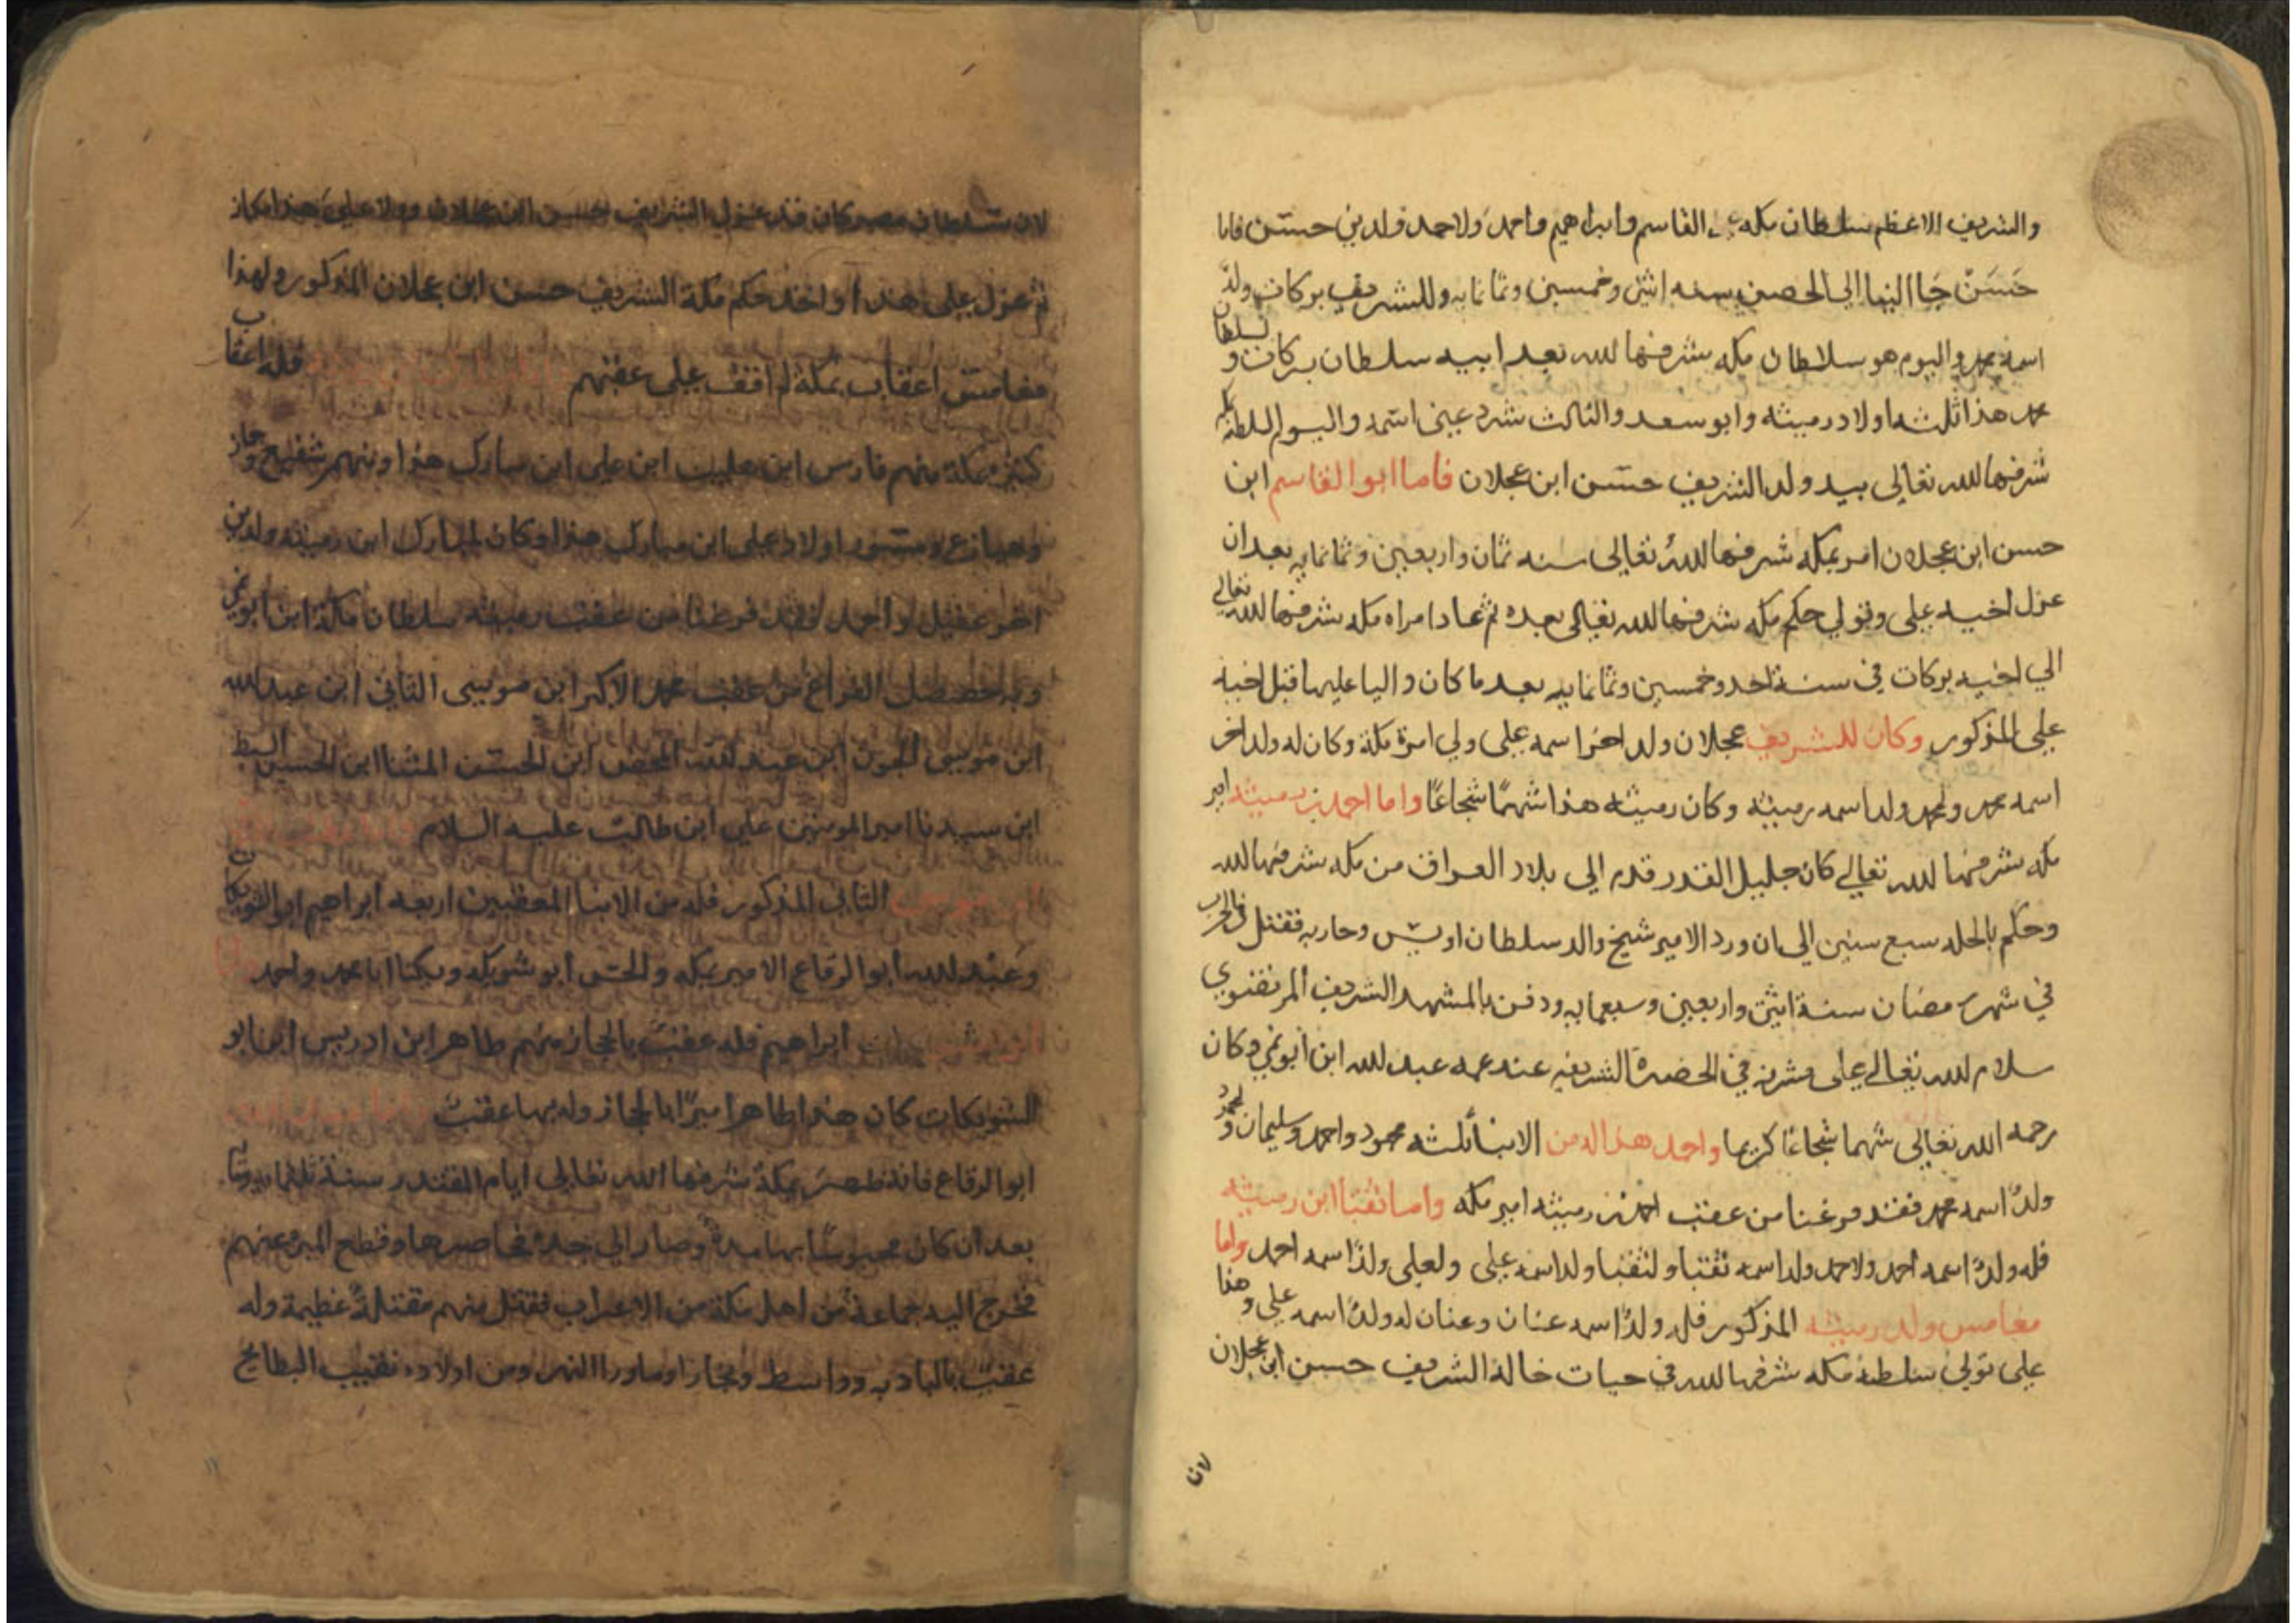 والشريف الاعظم سلطان مكه القاسم وابراهيم واحمد ولاحمد ولدين حسن فاما
حَسَن جَا الينا الي الحصن سنه اثنين وخمسين وثمانمايه وللشريف بركات ولدٌ
اسمه محمد واليوم هو سلاطان مكه شرفها الله بعد ابيه سلطان بركات و
محمد هذا ثلثه اولاد رميثه وابو سعد والثالث شرد عيني اسمه واليوم السلطنه بمكه
شرفها الله تعالى بيد ولد الشريف حسن ابن عجلان فاما ابوالقاسم ابن
حسن ابن عجلان امر بمكه شرفها اللهُ تعالى سنه ثمان واربعين وثمانمايه بعد ان
عزل اخيه علي وتولي حكم مكه شرفها الله تعالى بعده ثم عاد امراه مكه شرفها الله تعالي
الي اخيه بركات في سنة احد وخمسين وثمانمايه بعد ما كان واليا عليها قبل اخيه
علي المذكور وكان للشريف عجلان ولد اخر اسمه علي ولي امرة مكة وكان له ولد اخر
اسمه محمد ولمحمد ولد اسمه رميثه وكان رميثه هذا شهمًا شجاعًا واما احمد بن رميثه امير
مكه شرفها الله تعالي كان جليل القدر قدم الي بلاد العراق من مكه شرفها الله
وحكم بالحله سبع سنين الي ان ورد الامير شيخ والد سلطان اويس وحاربه فقتل في الحرب
في شهر رمضان سنة اثنين واربعين وسبعمايه ودفن بالمشهد الشريف المرتضوي
سلام الله تعالي علي مشرفه في الحضرة الشريفه عند عمه عبد الله ابن أبو نمي وكان
رحمه الله تعالى شهما شجاعًا كريما واحمد هذا له من الابنا ثلثه محمود واحمد وسليمان ولمحمود
ولدٌ اسمه محمد فقد فرغنا من عقب احمد بن رميثه امير مكه واما ثقبا ابن رميثه
فله ولدٌ اسمه احمد ولاحمد ولد اسمه ثقبا ولثقبا ولد اسمه علي ولعلي ولدًا اسمه احمد واما
مغامس ولد رميثه المذكور فله ولدٌ اسمه عنان وعنان له ولدٌ اسمه علي وهذا
علي تولي سلطنة مكه شرفها الله في حيات خاله الشريف حسن ابن عجلان
لان
لان سلطان مصر كان قد عزل الشريف حسن ابن عجلان وولا علي هذا مكان
ثم عزل علي هذا واخذ حكم مكة الشريف حسن ابن عجلان المذكور ولهذا
مغامس اعقاب بمكة لم اقف على عقبهم فله اعقاب
كثير بمكة منهم فارس ابن علي ابن مبارك هذا ومنهم شفيع وجاز
وهيازع ومنصور اولاد علي ابن مبارك هذا وكان لمبارك ابن رميثه ولدين
اخر عقيل واحمد فقد فرغنا من عقب رميثه سلطان مكة ابن ابونمي
وبه حصل الفراغ من عقب محمد الاكبر ابن موسى الثاني ابن عبد الله
ابن موسى الجون ابن عبد الله المحض ابن الحسن المثنا ابن الحسن السبط
ابن سيدنا امير المومنين علي ابن طالب عليه السلام
الثاني المذكور فله من الابنا المعقبين اربعه ابراهيم ابو الشويكات
وعَبْد الله أبو الرقاع الامير بمكه والحسن أبو شويكه ويكنا ابا محمد واحمد
ابراهيم فله عقبٌ بالحجاز منهم طاهر ابن ادريس ابن ابو
الشويكات كان هذا طاهر اميرًا بالحجاز وله بها عقبٌ
ابو الرقاع فانه ظهر بمكة شرفها الله تعالى ايام المقتدر سنة ثلثمايه
بعد ان كان محبوسًا بها مدة وصار الي جدة فحاصرها وقطع المير عنهم
فخرج اليه جماعة من اهل مكة من الاعراب فقتل منهم مقتلةً عظيمة وله
عقبٌ بالباديه وواسط وبخارا وماورا النهر ومن اولاده نقيب البطايح